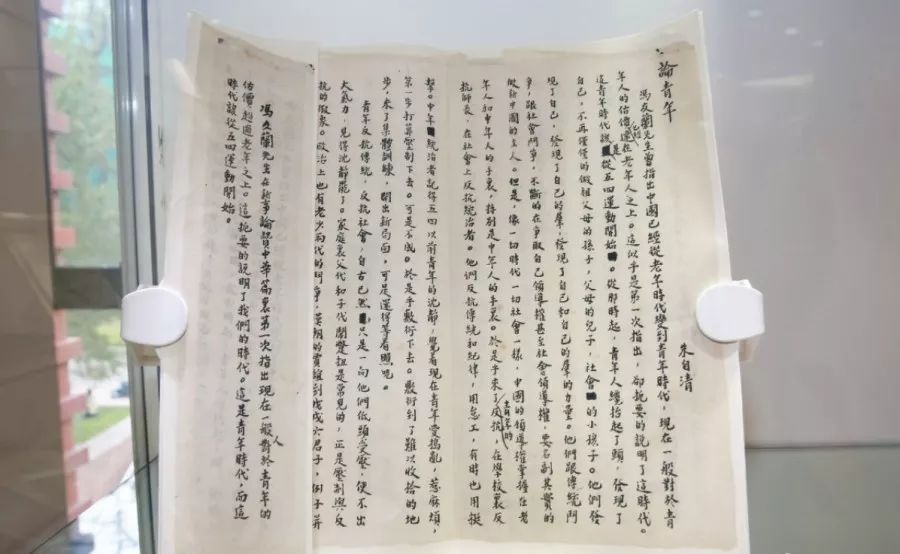 論青年
朱自清
馮友蘭先生曾指出中國已經從老年時代變到青年時代，現在一般對於青
年人的估價已經在老年人之上。這似乎是第一次指出，卻扼要的說明了這時代。
這青年時代是從五四運動開始。從那時起，青年人纔抬起了頭，發現了
自己，不再僅僅的做祖父母的孫子，父母的兒子，社會的小孩子。他們發
現了自己，發現了自己的羣，發現了自己和自己的羣的力量。他們跟傳統鬥
爭，跟社會鬥爭，不斷的在爭取自己領導權甚至社會領導權，要名副其實的
做新中國的主人。但是，像一切時代一切社會一樣，中國的領導權掌握在老
年人和中年人的手裏，特別是中年人的手裏。於是乎來了青年的反抗，在學校裏反
抗師長，在社會上反抗統治者。他們反抗傳統和紀律，用怠工，有時也用挺
擊。中年統治者記得五四以前青年的沈靜，覺着現在青年愛搗亂，惹麻煩，
第一步打算壓制下去。可是不成。於是乎敷衍下去。敷衍到了難以收拾的地
步，來了集體訓練，開出新局面，可是還得等着瞧呢。
青年反抗傳統，反抗社會，自古已然，只是一向他們低頭受壓，使不出
大氣力，見得沈靜罷了。家庭裏父代和子代鬧彆扭是常見的，正是壓制與反
抗的徵象。政治上也有老少兩代的鬥爭，漢朝的賈誼到戊戌六君子，例子并
馮友蘭先生在新事論贊中華篇裏第一次指出現在一般人對於青年的
估價超過老年之上。這扼要的說明了我們的時代。這是青年時代，而這
時代該從五四運動開始。